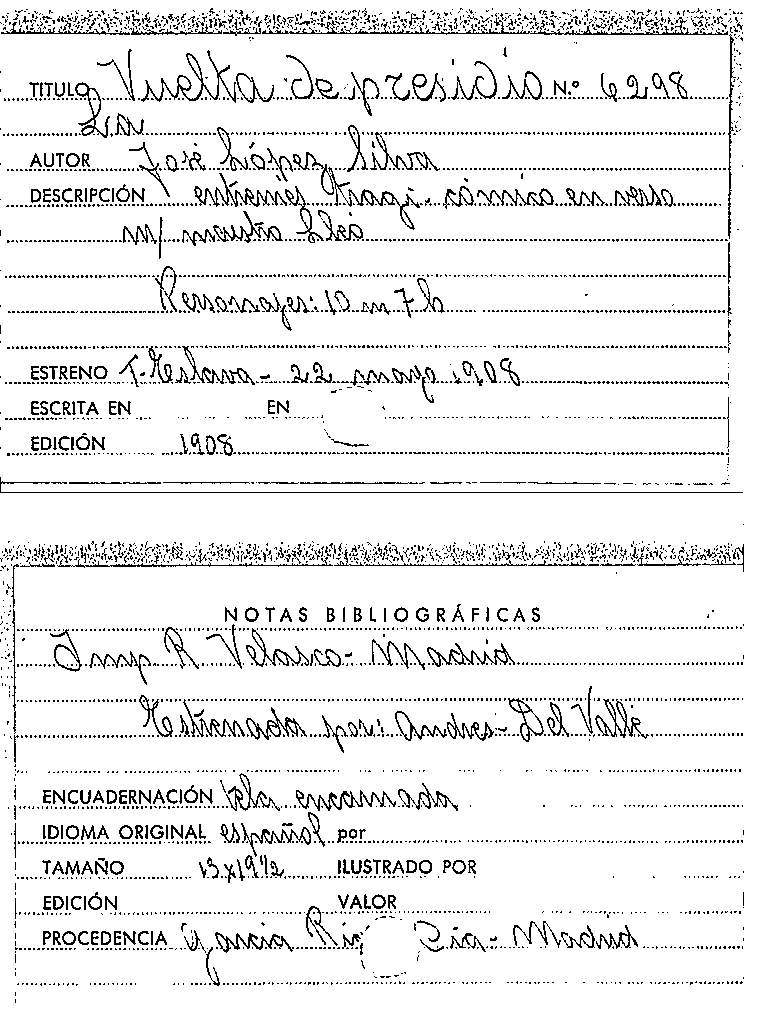 TITULO Vuelta de presidio N.º 6298
La
AUTOR José López Silva
DESCRIPCIÓN entremés tragi-cómico en verso
m/ maestro Lleó
Personajes: 10 m 7 h
ESTRENO T. Eslava - 22 mayo 1908
ESCRITA EN EN
EDICIÓN 1908
NOTAS BIBLIOGRÁFICAS
Imp R. Velasco - Madrid
Estrenada por: Andres - Del Valle
ENCUADERNACIÓN tela encarnada
IDIOMA ORIGINAL español por
TAMAÑO 13x19½ ILUSTRADO POR
EDICIÓN VALOR
PROCEDENCIA Garcia Rico Cia - Madrid